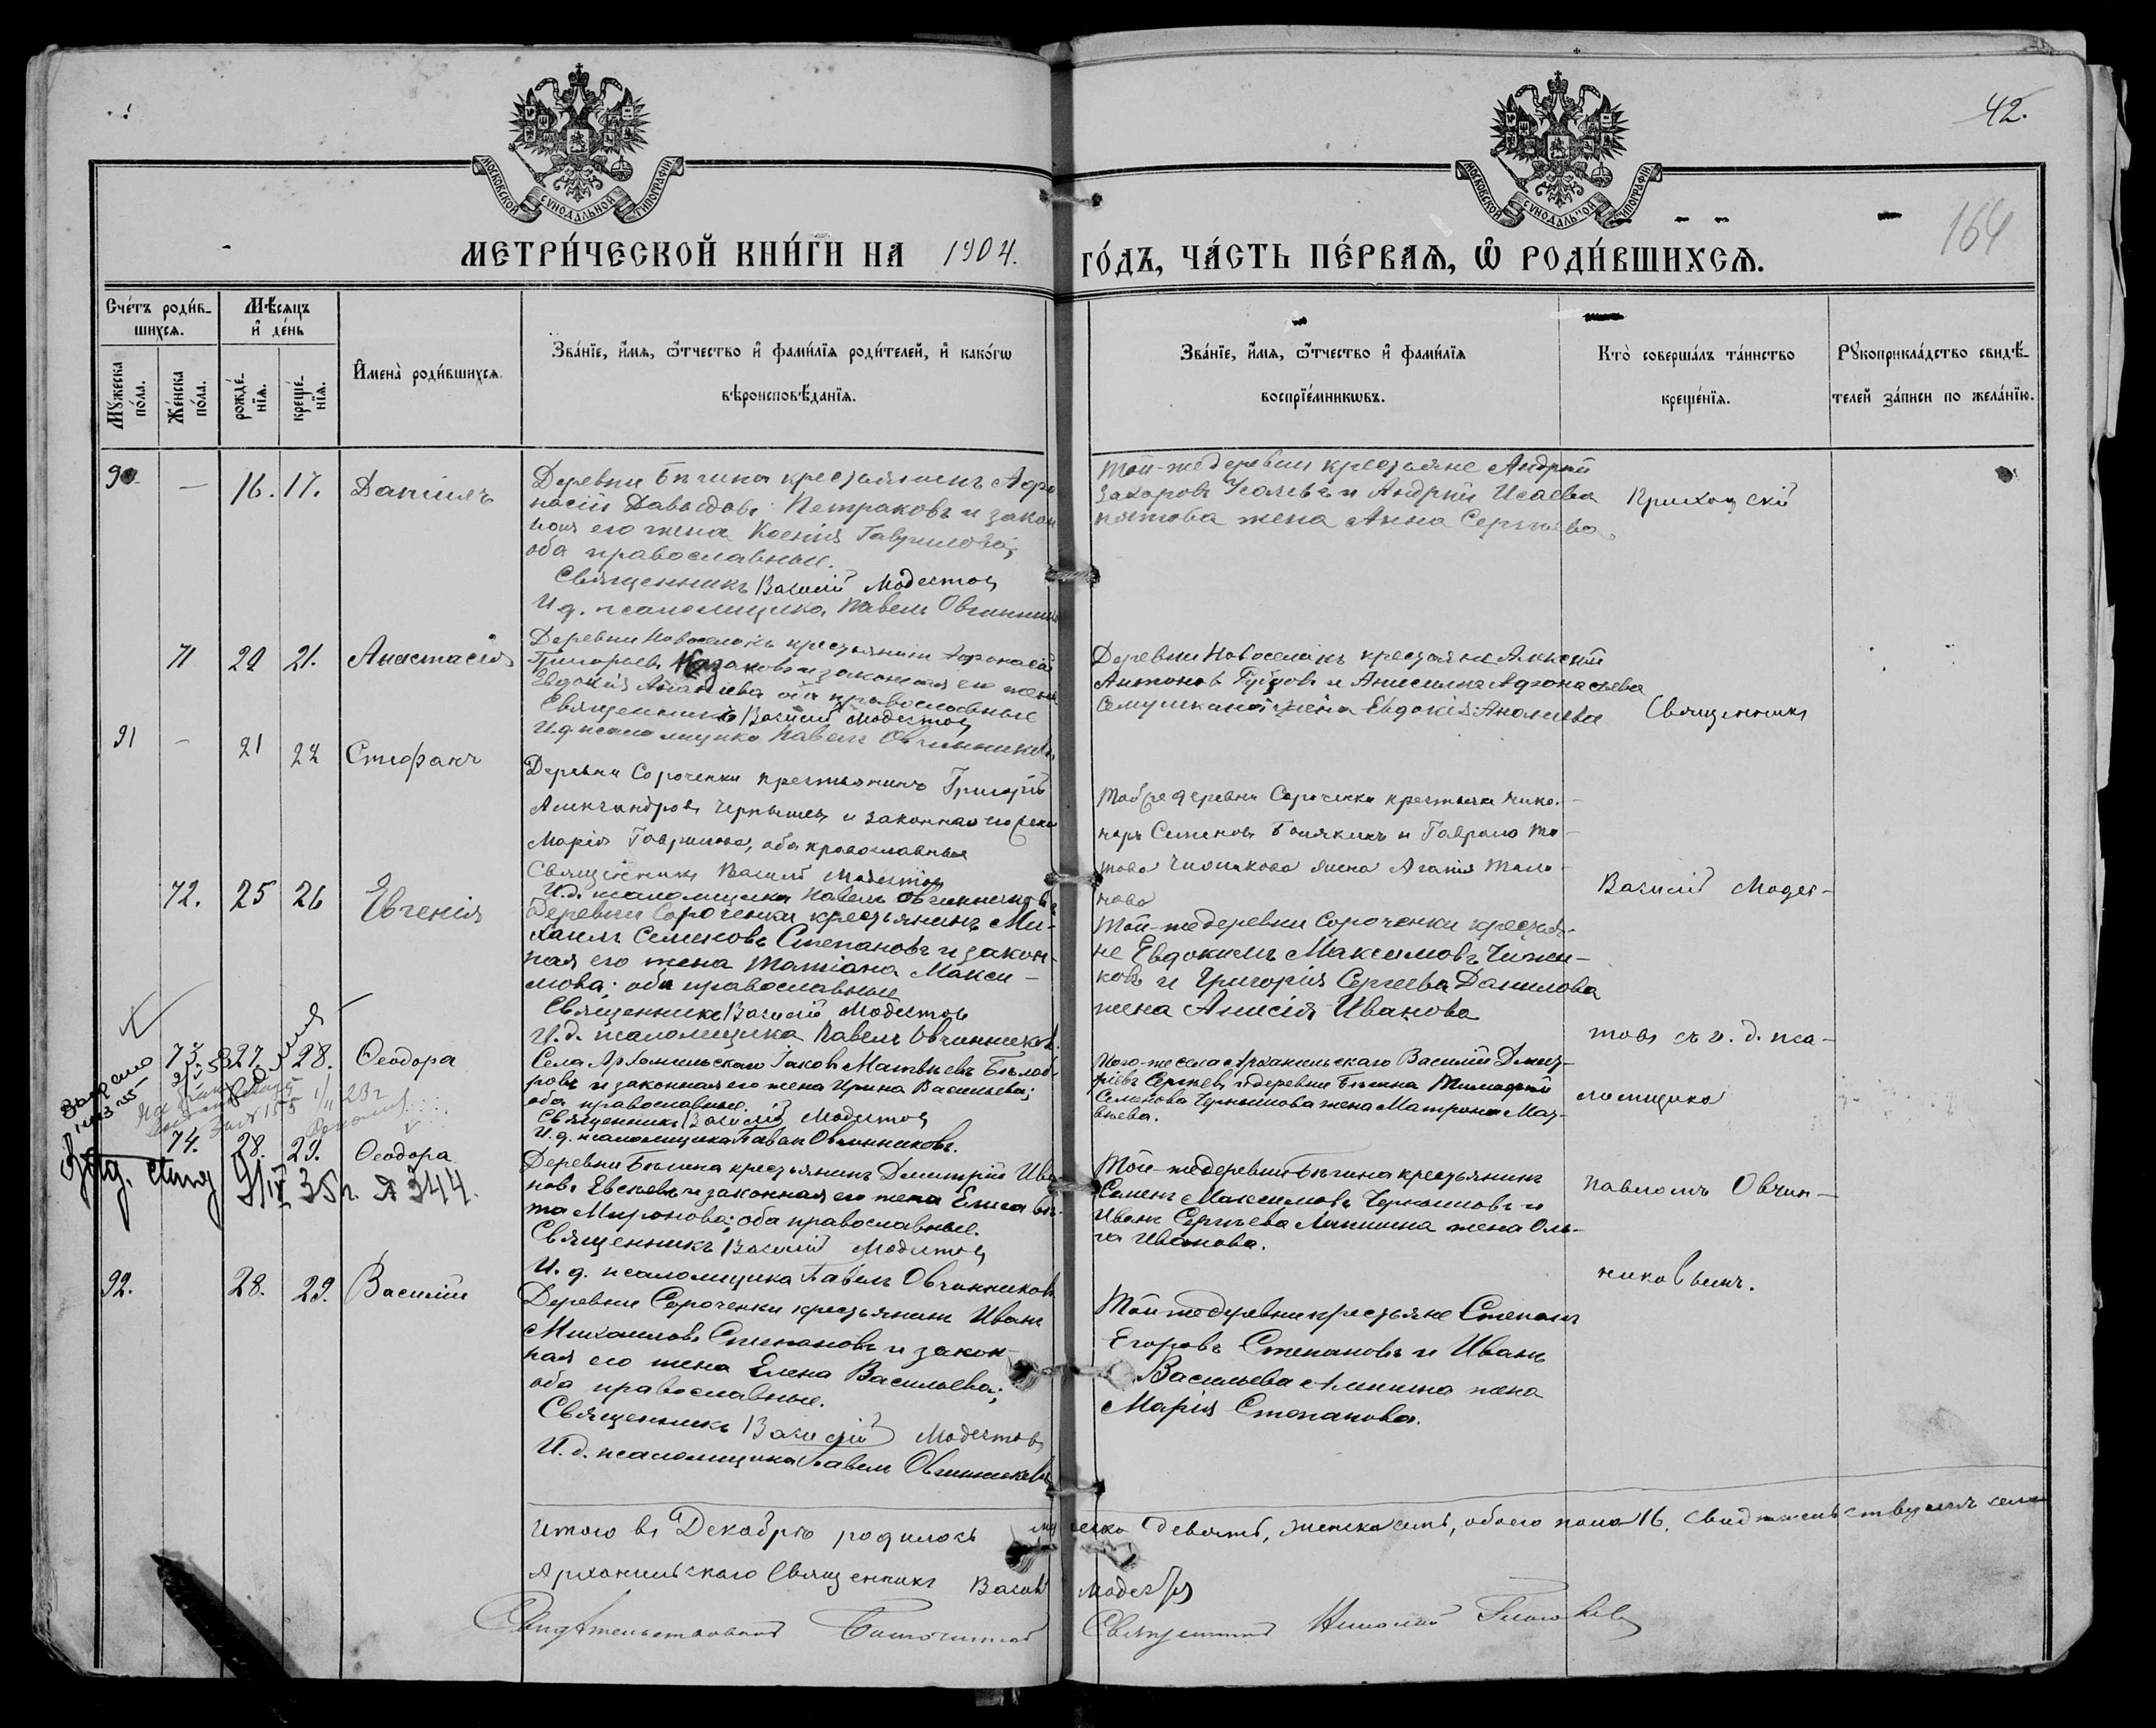 42.
164
МОСКОВСКОЙ СѴНОДАЛЬНОЙ ТИПОГРАФІИ
МОСКОВСКОЙ СѴНОДАЛЬНОЙ ТИПОГРАФІИ
МЕТРИ́ЧЕСКОЙ КНИ́ГИ НА 1904. ГО́ДЪ, ЧА́СТЬ ПЕ́РВАѦ, Ѡ҆ РОДИ́ВШИХСѦ.
Сче́тъ роди́в-
шихсѧ.
Мꙋжеска по́ла.
Же́нска по́ла.
Мѣ́сѧцъ
и҆ де́нь
рожде́-
нїѧ.
креще́-
нїѧ.
И҆мена̀ роди́вшихсѧ.
Зва́нїе, и҆́мѧ, ѻ҆́тчество и҆ фами́лїѧ роди́телей, и҆ како́гѡ
вѣроисповѣ́данїѧ.
Зва́нїе, и҆́мѧ, ѻ҆́тчество и҆ фами́лїѧ
воспрїе́мникѡвъ.
Кто̀ соверша́лъ та́инство
креще́нїѧ.
Рꙋкоприкла́дство свидѣ́-
телей за́писи по жела́нїю.
90 — 16. 17. Даніилъ
Деревни Бѣгина крестьянинъ Афо
насій Давыдовъ Петраковъ и закон
ная его жена Ксенія Гаврилова;
оба православные.
Священникъ Василій Модестовъ
И. д. псаломщика Павелъ Овчинник
Той-же деревни крестьяне Андрей
Захаровъ и Андрея Исаева
жена Анна Сергѣева.
71 20 21. Анастасія
Деревни Новоселокъ крестьянинъ Афонасій
Григорьевъ Казаковъ и законная его жена
Евдокія Ананьева оба православные
Священникъ Василій Модестовъ
И. д. псаломщика Павелъ Овчинниковъ
Деревни Новоселокъ крестьяне Алексѣй
Антоновъ и Анисима Афонасьева
жена Евдокія Ананьева
91 — 21 22 Стефанъ
Деревни Сороченки крестьянинъ Григорій
Александровъ Чернышевъ и законная его жена
Марія Гаврилова, оба православные
Священникъ Василій Модестовъ
И. д. псаломщика Павелъ Овчинниковъ
Той же деревни Сороченки крестьяне Нико-
норъ Семеновъ и Гаврила
жена Агапія
72. 25 26 Евгенія
Деревни Сороченки крестьянинъ Ми-
хаилъ Семеновъ Степановъ и закон-
ная его жена Татіана Макси-
мова; оба православные
Священникъ Василій Модестовъ
И. д. псаломщика Павелъ Овчинниковъ
Той-же деревни Сороченки крестья-
не Евдокимъ Максимовъ Чижи-
ковъ и Григорія Сергѣева Данилова
жена Анисія Иванова
73. 27. 28. Ѳеодора
Села Архангельскаго Іаковъ Матвѣевъ Бѣлоб-
ровъ и законная его жена Ирина Васильева;
оба православные.
Священникъ Василій Модестовъ
И. д. псаломщика Павелъ Овчинниковъ.
Того-же села Архангельскаго Василій Дмит-
ріевъ Сергѣевъ и деревни Бѣгина Тимофея
Семенова Чернышова жена Матрона Мат-
вѣева.
74. 28. 29. Ѳеодора
Деревни Бѣгина крестьянинъ Димитрій Ива
новъ Евсѣевъ и законная его жена Елисаве-
та Миронова; оба православные.
Священникъ Василій Модестовъ
И. д. псаломщика Павелъ Овчинниковъ
Той-же деревни Бѣгина крестьянинъ
Семенъ Максимовъ Чернышовъ и
Ивана Сергѣева Лапшина жена Оль-
га Иванова.
9/IV 35г. № 344.
92. 28. 29. Василій
Деревни Сороченки крестьянинъ Иванъ
Михаиловъ Степановъ и закон-
ная его жена Елена Васильева;
оба православные.
Священникъ Василій Модестовъ
И. д. псаломщика Павелъ Овчинниковъ
Той-же деревни крестьяне Степанъ
Егоровъ Степановъ и Ивана
Васильева жена
Марія Степанова.
Приходскій
Священникъ
Василій Модес-
товъ съ и. д. пса-
ломщика
Павломъ Овчин-
никовымъ.
Итого въ Декабрѣ родилось мужеска девять, женска семь, обоего пола 16. Свидѣтельствуемъ села
Архангельскаго Священникъ Василій Модестовъ
Свидѣтельствовалъ Благочинный Священникъ Николай